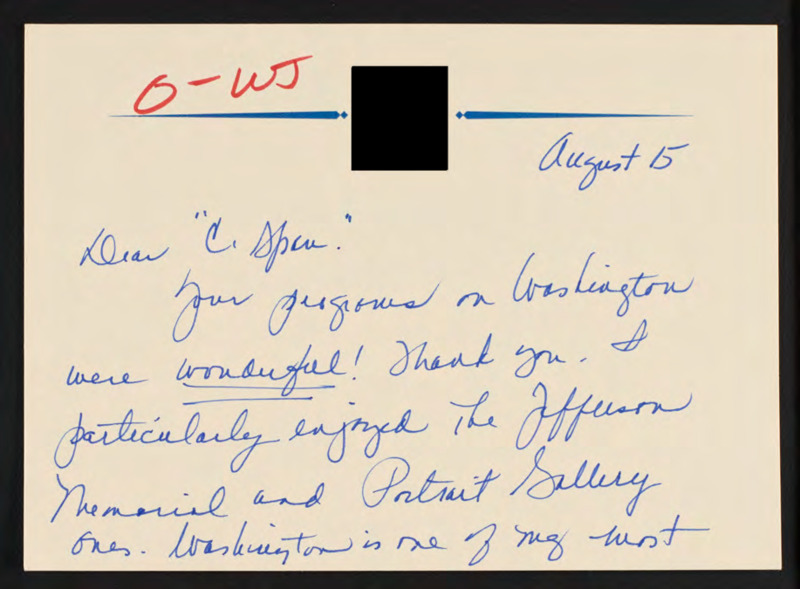 O-WJ
August 15
Dear "C. Span."
Your programs on Washington
were wonderful! Thank you. I
particularly enjoyed the Jefferson
Memorial and Portrait Gallery
ones. Washington is one of my most